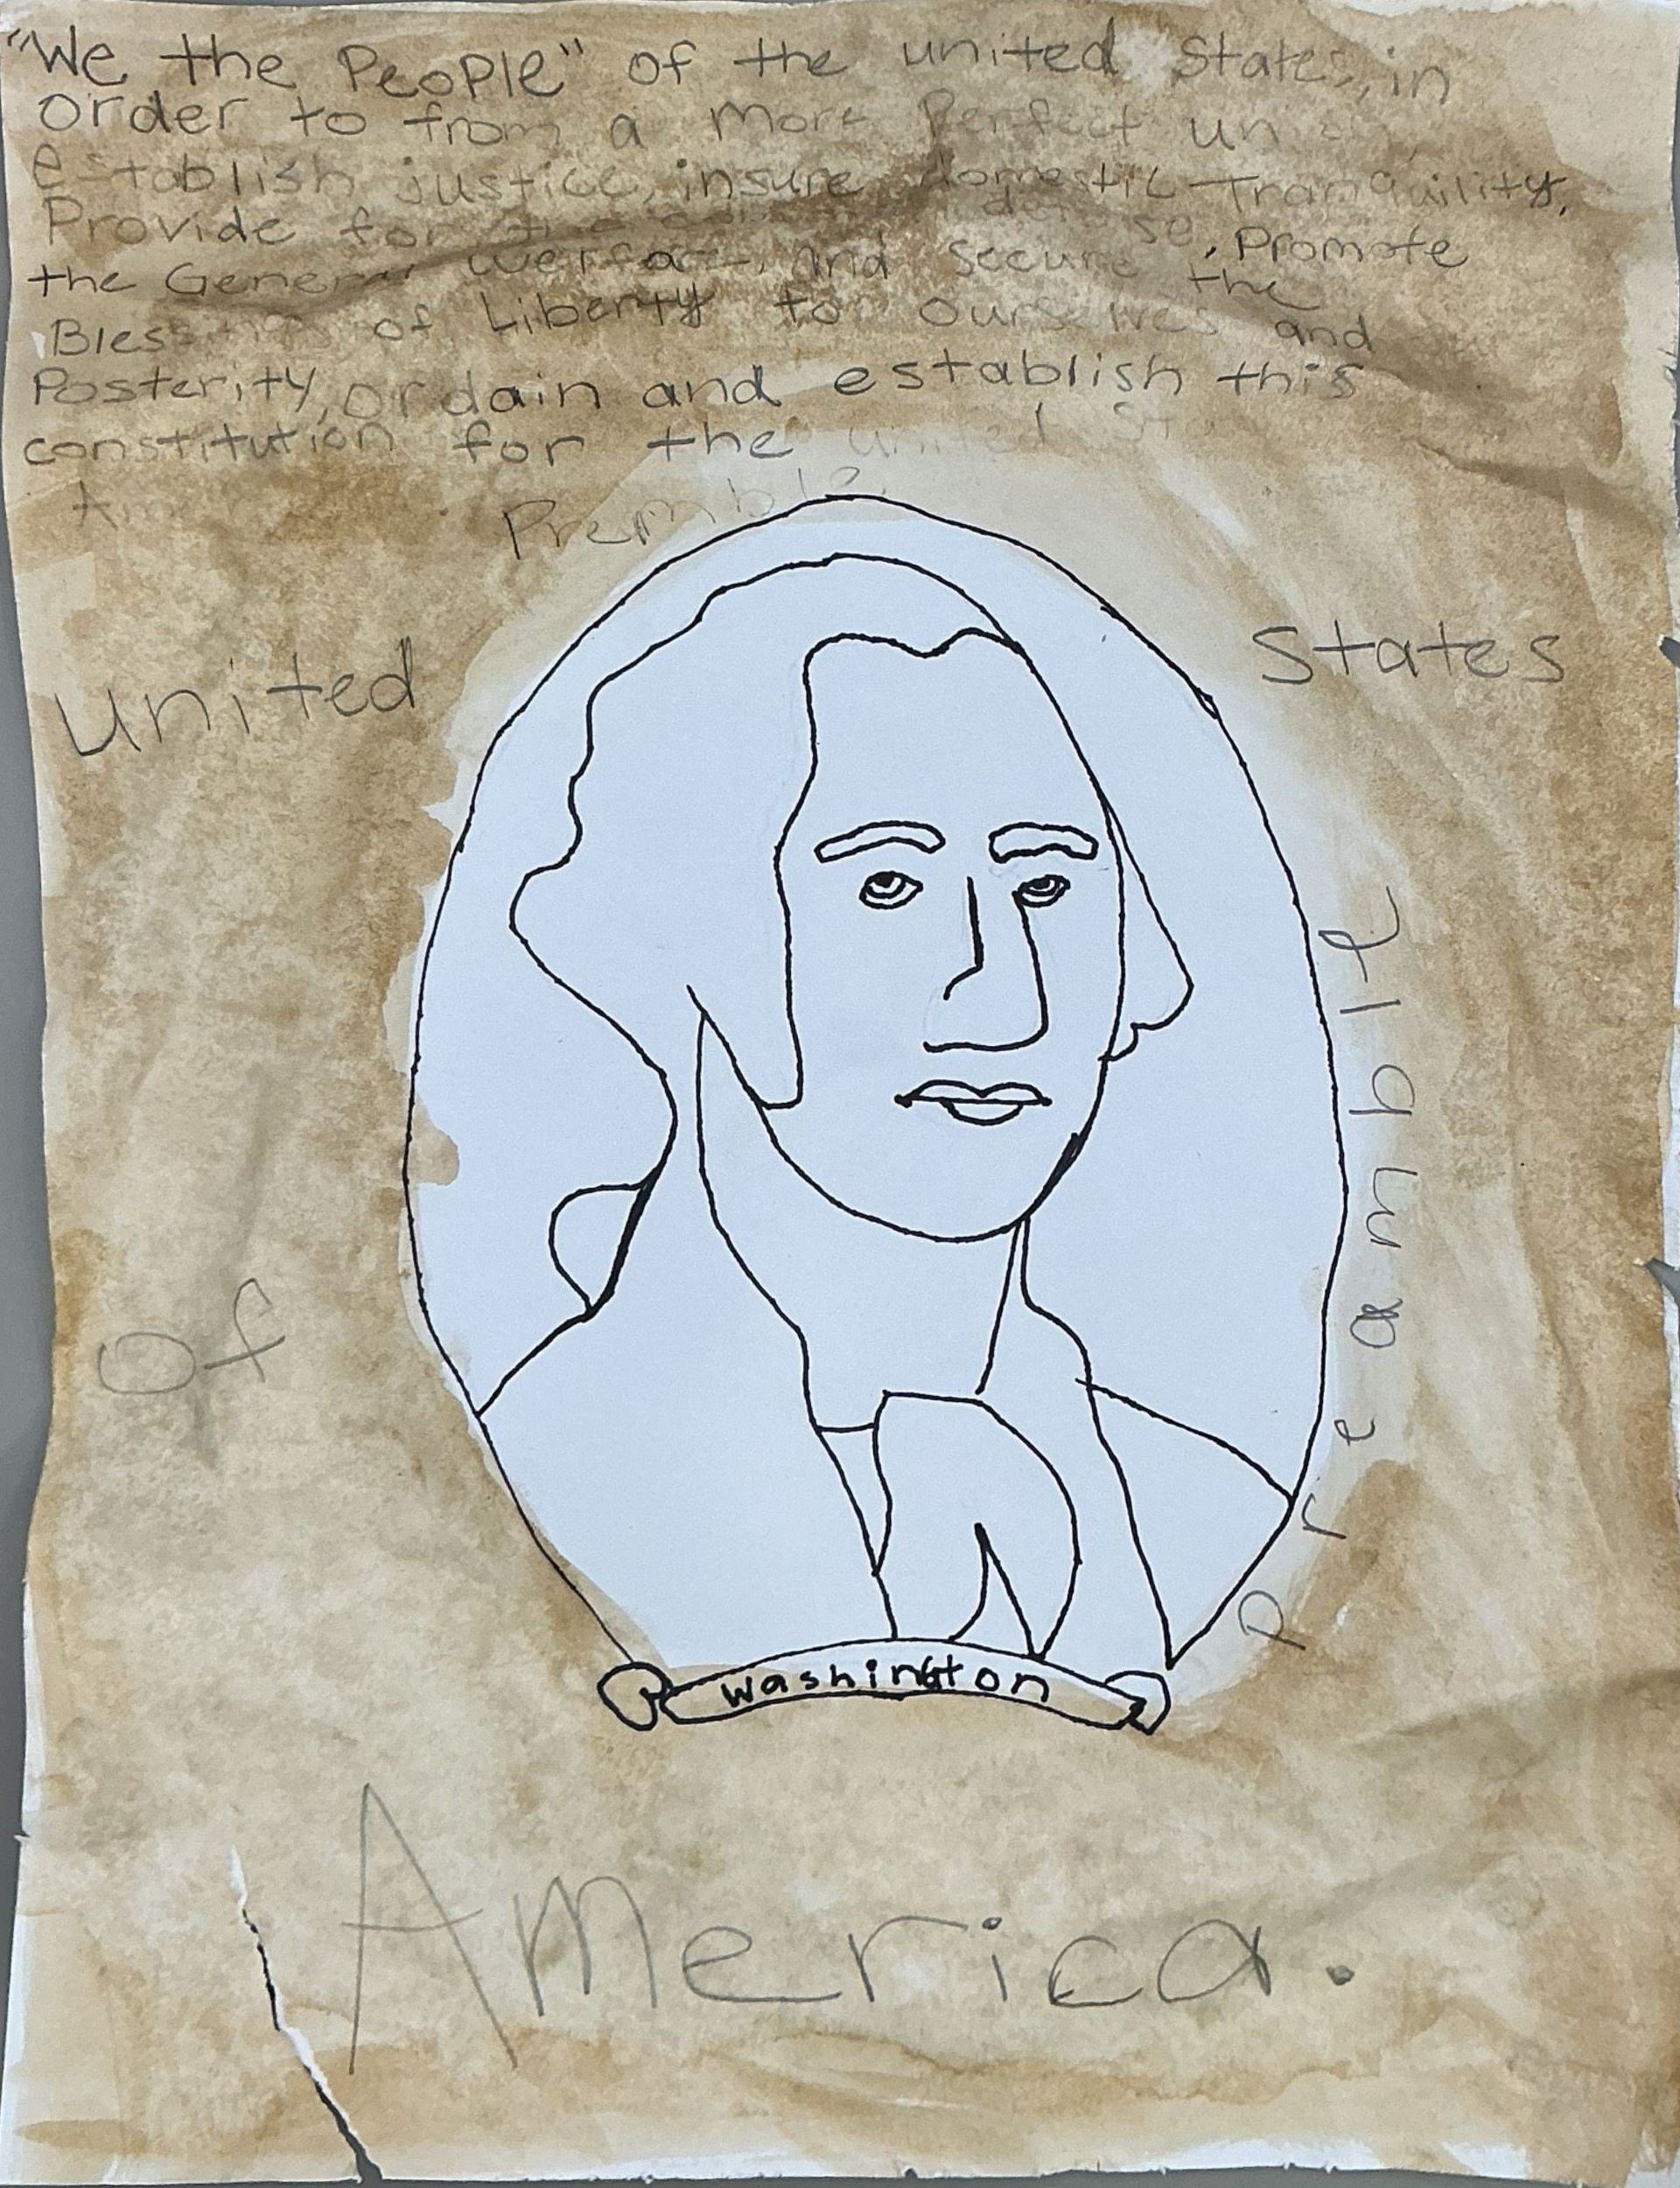 "We the PeoPle" of the united States, in
order to from a More Perfect un
establish justice, insure domestic Tranquility,
Provide for the defense, Promote
the General welfare, and secure the
Blessings of Liberty to ourselves and
Posterity, ordain and establish this
constitution for the united Sta
Ame
Premble.
united States
Of
preamble
washington
America.